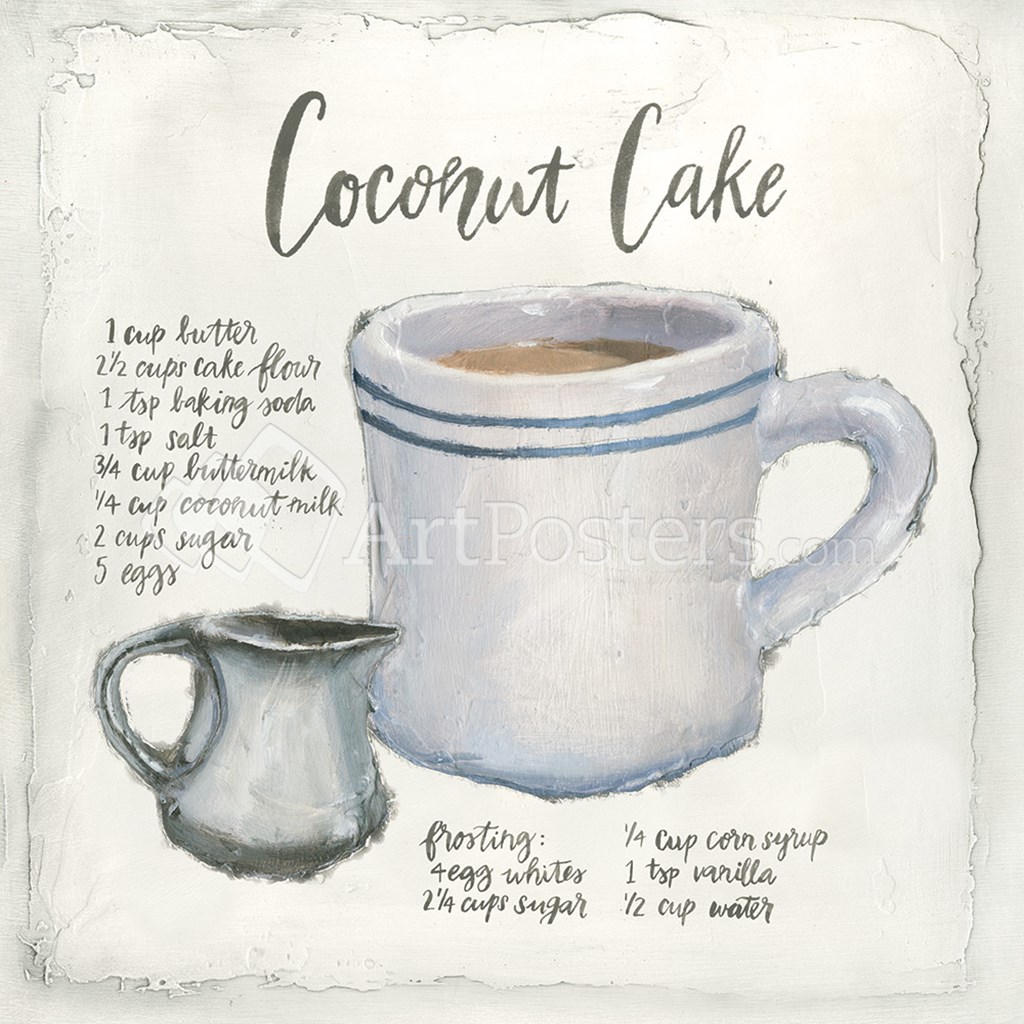 Coconut Cake
1 cup butter
2½ cups cake flour
1 tsp baking soda
1 tsp salt
3/4 cup buttermilk
1/4 cup coconut milk
2 cups sugar
5 eggs
ArtPosters.com
frosting:
4 egg whites
2¼ cups sugar
1/4 cup corn syrup
1 tsp vanilla
1/2 cup water